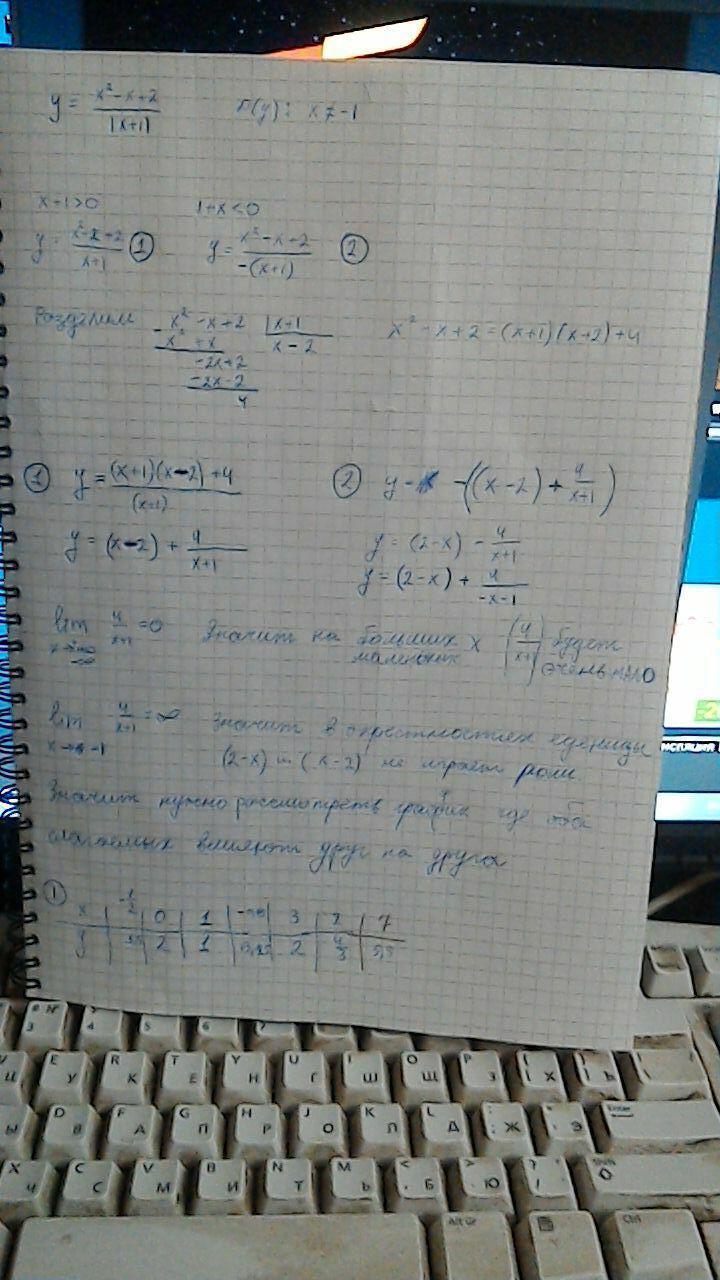 y = x² - x + 2 / |x+1| D(y): x ≠ -1
x+1>0 1+x<0
y = x² - x + 2 / x+1 ① y = x² - x + 2 / -(x+1) ②
Разделим x² - x + 2 | x+1 x² - x + 2 = (x+1)(x+2)+4
x² + x x - 2
-2x+2
-2x-2
4
① y = (x+1)(x-2)+4 / (x+1) ② y - -((x-2) + 4/x+1)
y = (x-2) + 4/x+1 y = (2-x) - 4/x+1
y = (2-x) + 4/-x-1
lim 4/x+1 = 0 Значит на больших x (4/x+1) будет
маленьких очень мало
lim 4/x+1 = ∞ значит в окрестностях еденицы
x→-1 (2-x) и (x-2) не играет роли.
Значит нужно рассмотреть график где оба
слагаемых влияют друг на друга
①
x | -1/2 | 0 | 1 | | 3 | 2 | 7
y | | 2 | 1 | | 2 | 4/3 | 5,5
Enter
Shift
Alt Gr
Ctrl